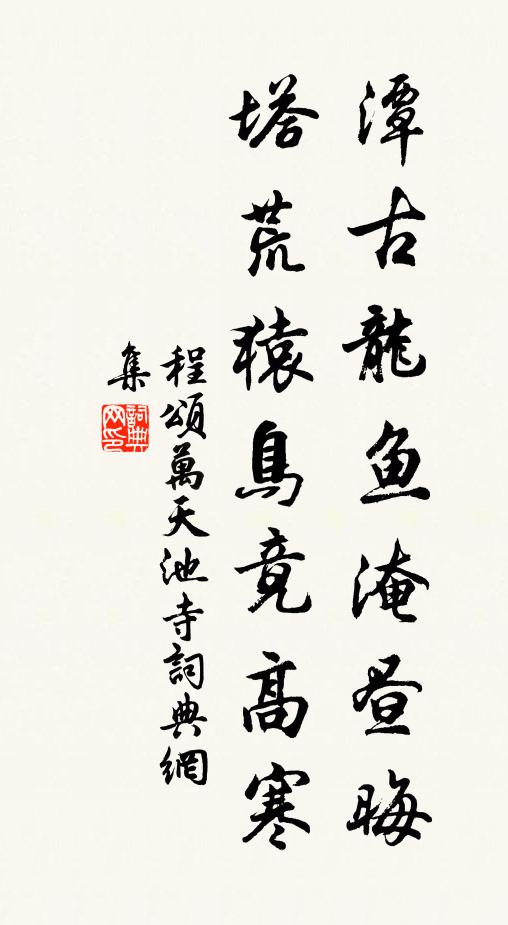 潭古龍魚淹昼晦
塔荒猿鳥竟高寒
程頌萬天池寺詞典網
集
詞典
网印